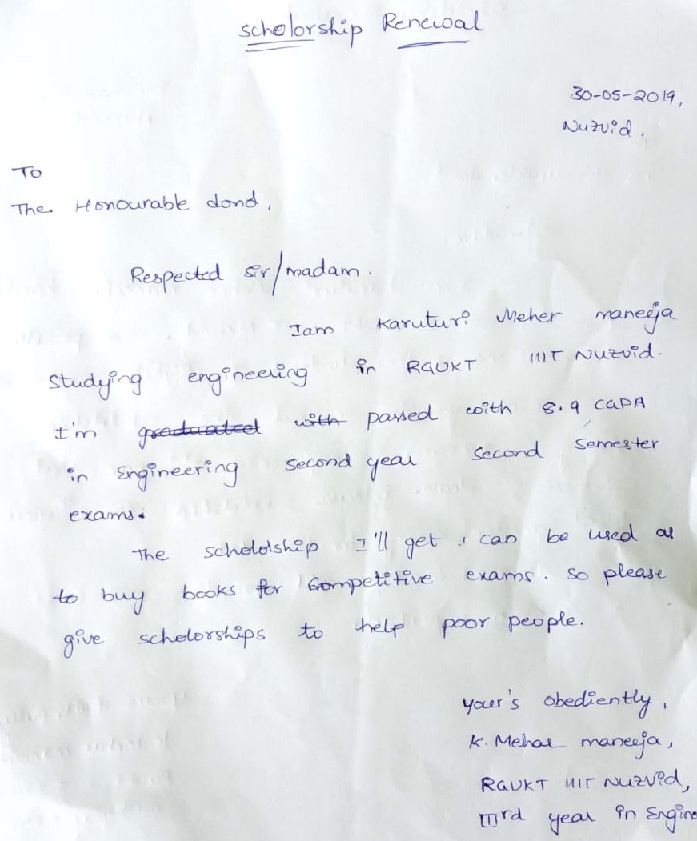 scholorship Renewal
30-05-2019,
Nuzvid.
To
The Honourable dond,
Respected sir/madam.
Iam Karuturi Meher maneeja
studying engineering in RGUKT IIIT Nuzvid.
I'm graduated with passed with 8.9 CGPA
in Engineering second year second semester
exams.
The schololship I'll get, can be used as
to buy books for Competitive exams. so please
give scholorships to help poor people.
your's obediently,
K. Mehar maneeja,
RGUKT IIIT Nuzvid,
IIIrd year in Engine